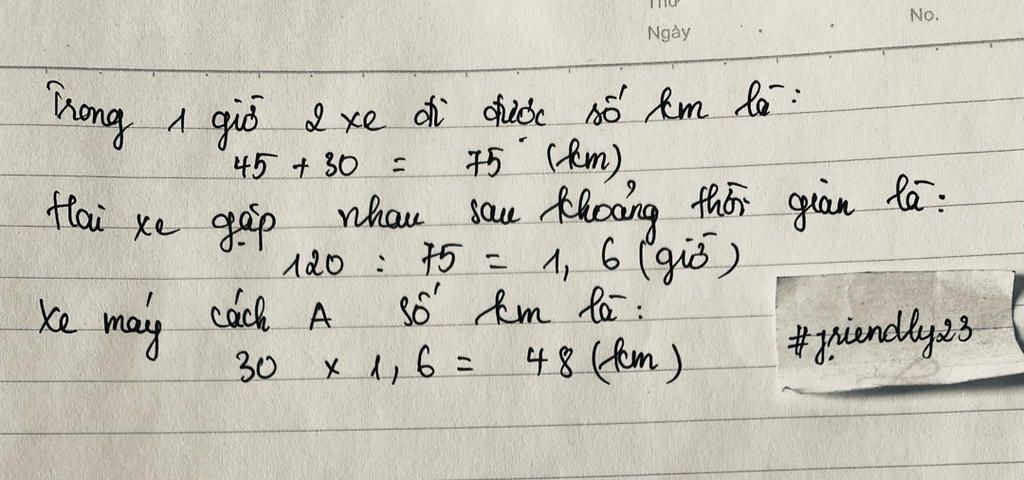 Thứ
Ngày
No.
Trong 1 giờ 2 xe đi được số km là:
45 + 30 = 75 (km)
Hai xe gặp nhau sau khoảng thời gian là:
120 : 75 = 1,6 (giờ)
Xe máy cách A số km là:
30 x 1,6 = 48 (km)
#friendly23